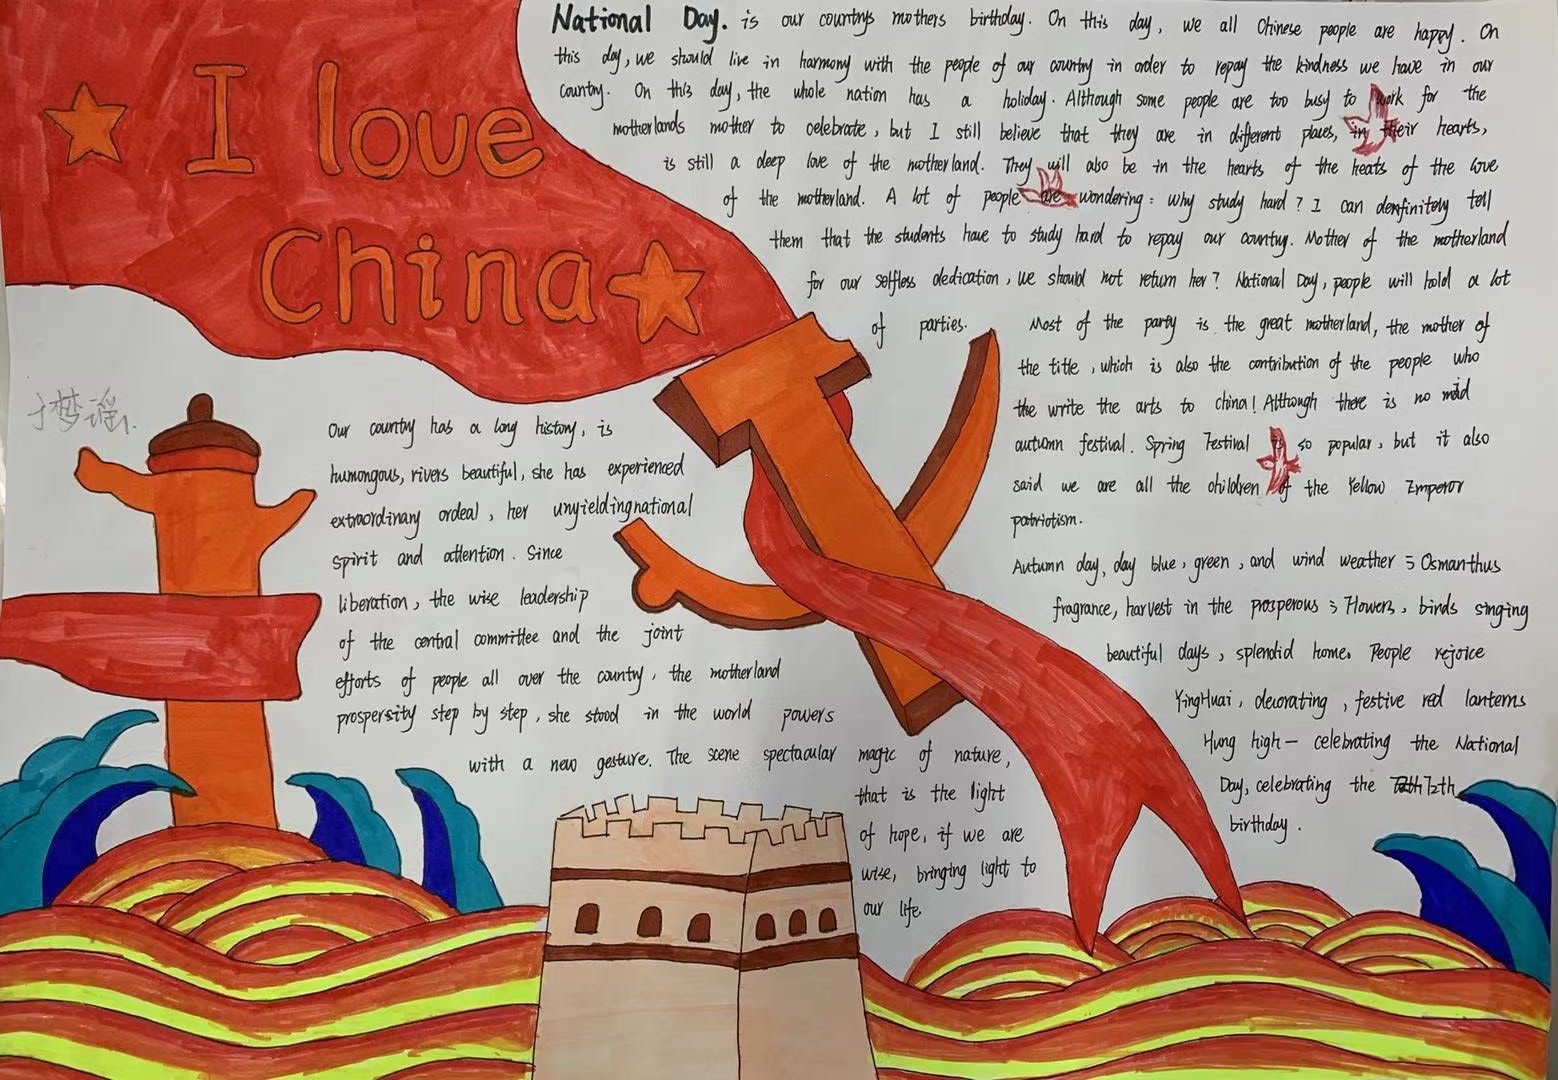 I love
China
National Day. is our countrys mothers birthday. On this day, we all Chinese people are happy. On
this day, we should live in harmony with the people of our country in order to repay the kindness we have in our
country. On this day, the whole nation has a holiday. Although some people are too busy to work for the
motherlands mother to celebrate, but I still believe that they are in different places, in their hearts,
is still a deep love of the motherland. They will also be in the hearts of the heats of the love
of the motherland. A lot of people are wondering: why study hard? I can denfinitely tell
them that the students have to study hard to repay our country. Mother of the motherland
for our selfless dedication, we should not return her? National Day, people will hold a lot
of parties. Most of the party is the great motherland, the mother of
the title, which is also the contribution of the people who
the write the arts to china! Although there is no mid
autumn festival. Spring Festival is so popular, but it also
said we are all the children of the Yellow Emperor
patriotism.
Autumn day, day blue, green, and wind weather; Osmanthus
fragrance, harvest in the prosperous; Flowers, birds singing
beautiful days, splendid home. People rejoice
YingHuai, decorating, festive red lanterns
Hung high— celebrating the National
Day, celebrating the 72th
birthday.
于梦谣
Our country has a long history, is
humongous, rivers beautiful, she has experienced
extraordinary ordeal, her unyieldingnational
spirit and attention. Since
liberation, the wise leadership
of the central committee and the joint
efforts of people all over the country, the motherland
prospersity step by step, she stood in the world powers
with a new gesture. The scene spectacular magic of nature,
that is the light
of hope, if we are
wise, bringing light to
our life.